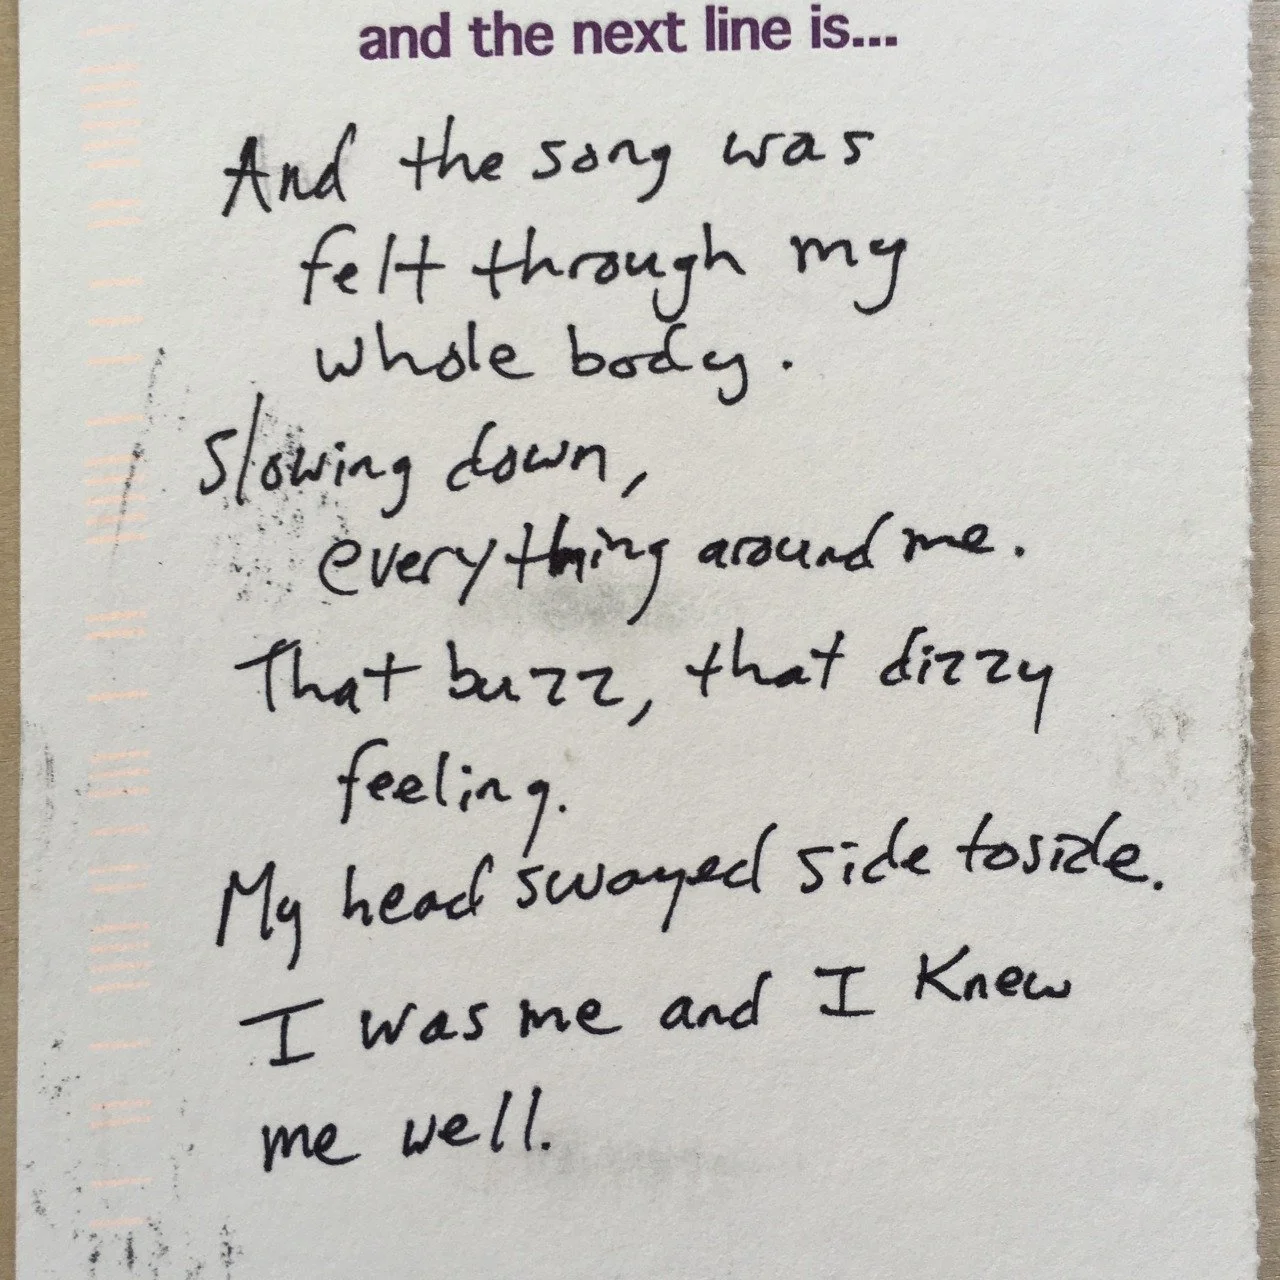 and the next line is...
And the song was
felt through my
whole body.
Slowing down,
everything around me.
That buzz, that dizzy
feeling.
My head swayed side to side.
I was me and I knew
me well.